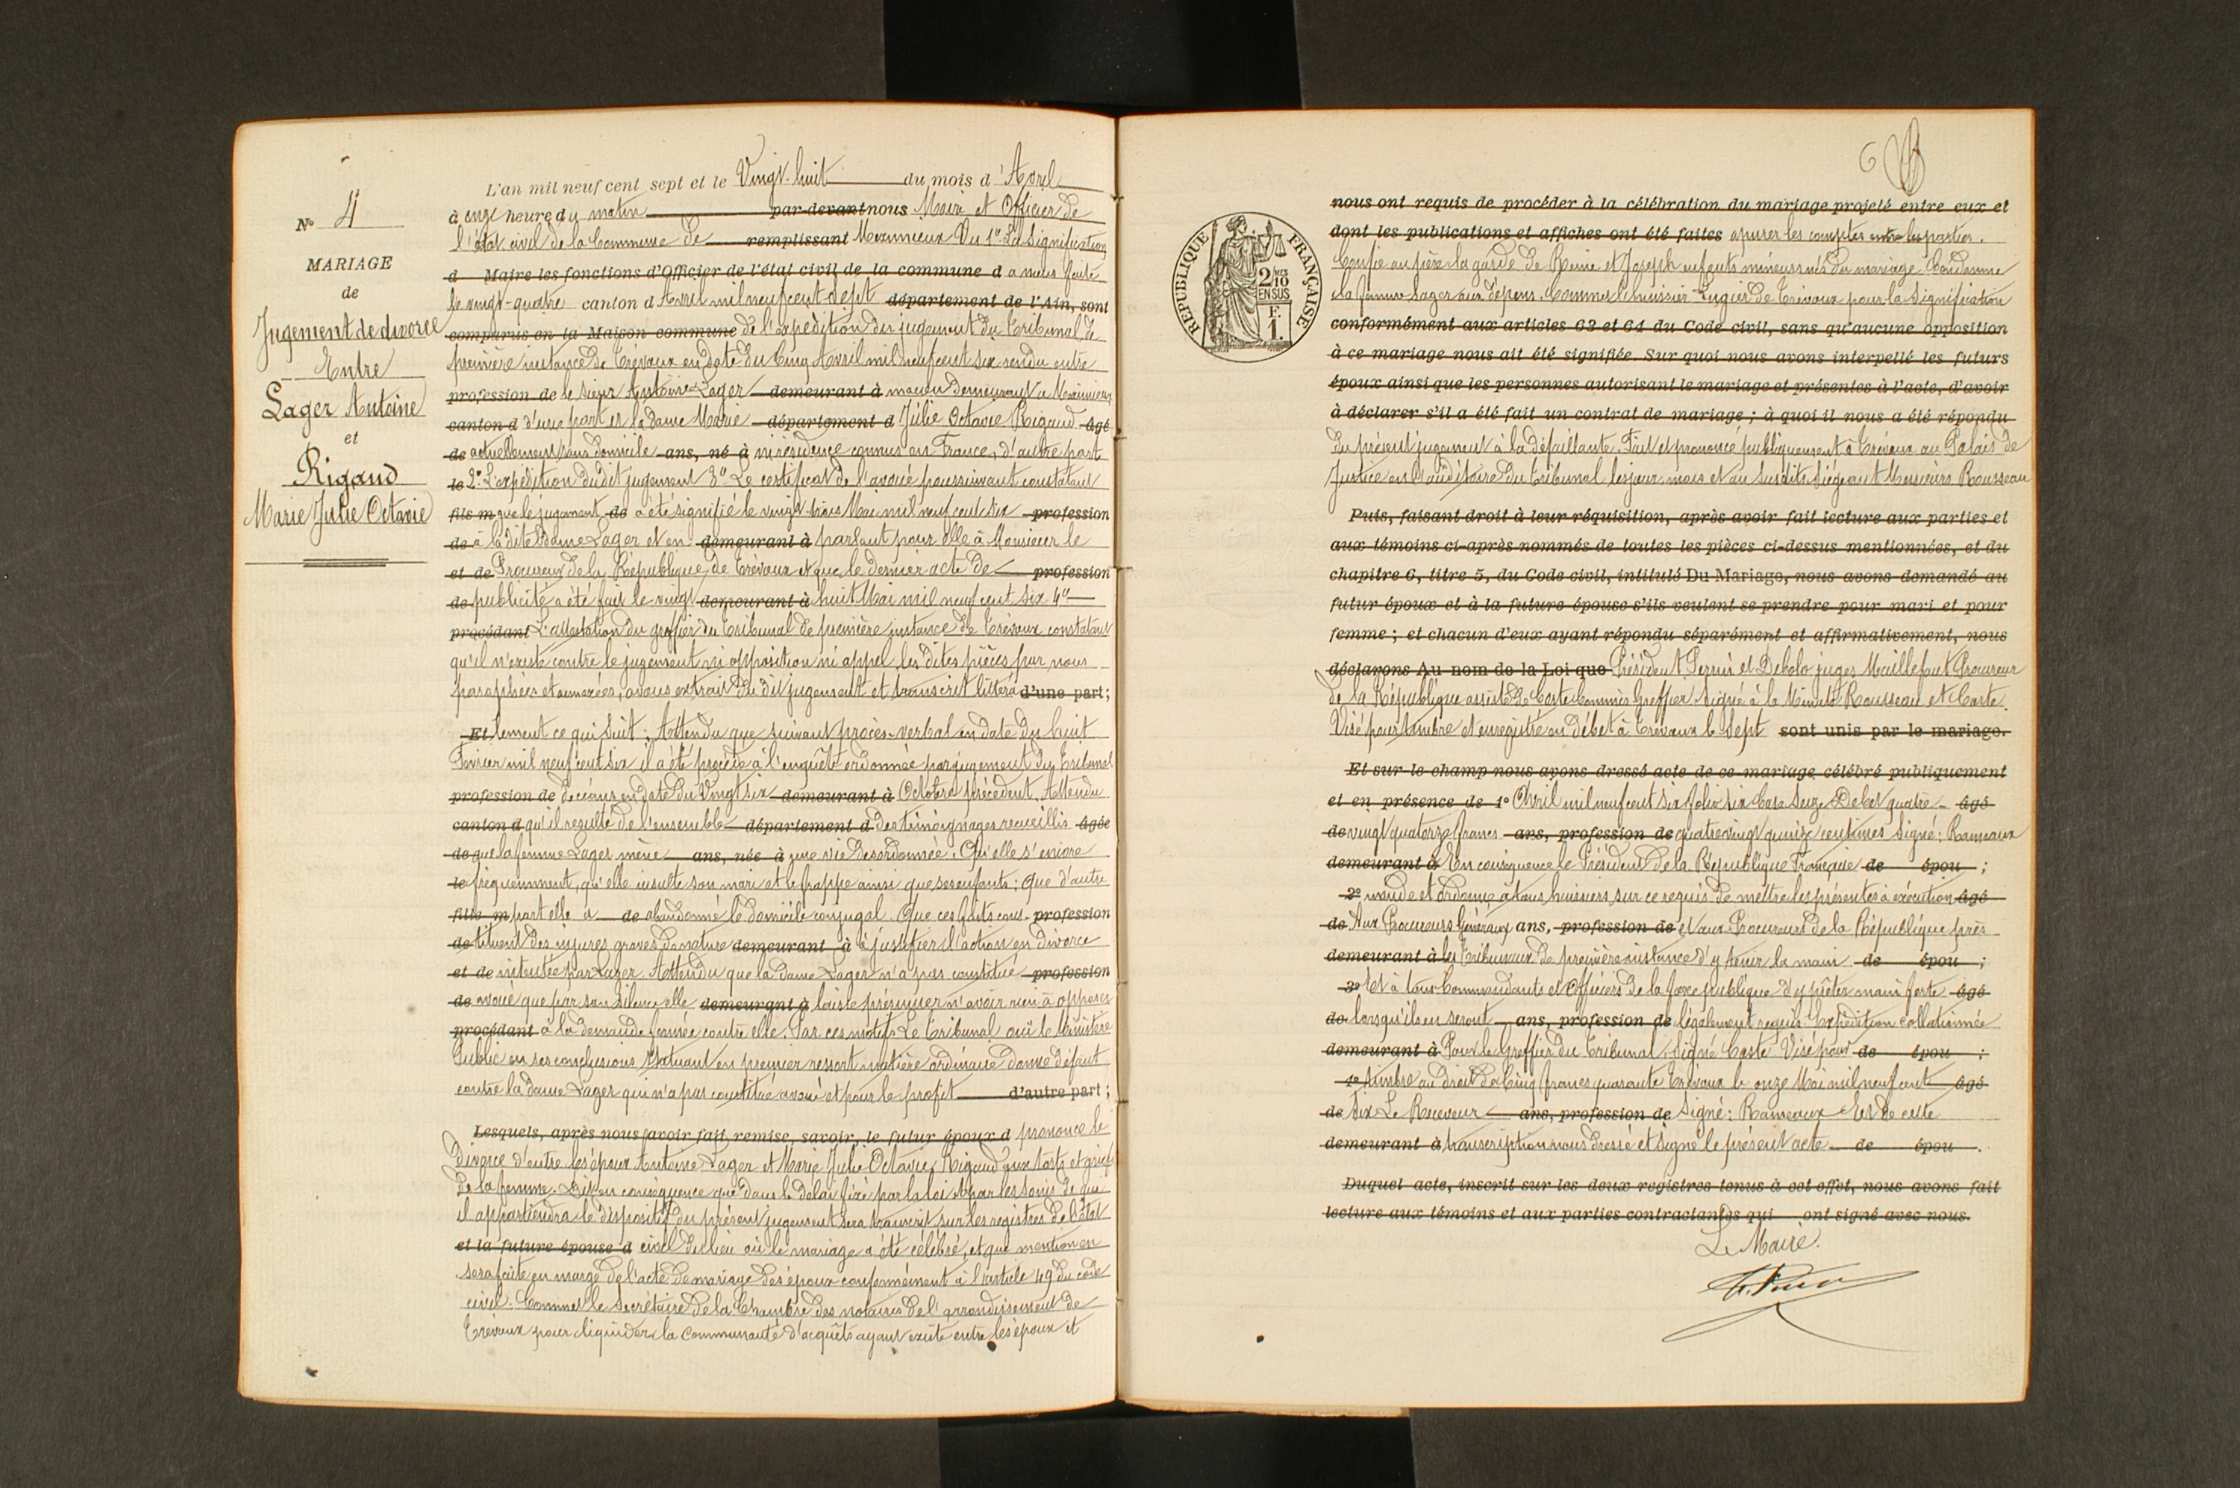 N° 4
MARIAGE
de
Jugement de divorce
Entre
Lager Antoine
et
Rigaud
Marie Julie Octavie
L'an mil neuf cent sept et le Vingt-huit du mois d'Avril
à onze heure du matin par-devant nous Maire et Officier de
l'état civil de la Commune de remplissant Mionnieux Vu 1° La Signification
d Maire les fonctions d'Officier de l'état civil de la commune d a nous faite
le vingt-quatre canton d Avril mil neuf cent sept département de l'Ain, sont
comparus en la Maison commune de l'expédition du jugement du Tribunal de
première instance de Trévoux en date du Cinq Avril mil neuf cent six rendu entre
profession de le sieur Antoine Lager demeurant à maçon demeurant à
canton d d'une part et la dame Marie département d Julie Octavie Rigaud âgé
de actuellement sans domicile ans, né à ni résidence connus en France, d'autre part
le 2° L'expédition du dit jugement 3° Le certificat de l'avoué poursuivant constatant
fils m que le jugement de a été signifié le vingt trois Mai mil neuf cent six profession
de à la dite dame Lager et en demeurant à parlant pour elle à Monsieur le
et de Procureur de la République de Trévoux et que le dernier acte de profession
de publicité a été fait le vingt demeurant à huit Mai mil neuf cent six 4°
procédant L'attestation du greffier du Tribunal de première instance de Trévoux constatant
qu'il n'existe contre le jugement ni opposition ni appel, les dites pièces par nous
paraphées et annexées, avons extrait du dit jugement et transcrit littéra d'une part;
Et lement ce qui suit: Attendu que suivant procès-verbal en date du huit
Février mil neuf cent six il a été procédé à l'enquête ordonnée par jugement du Tribunal
profession de de céans en date du Vingt six demeurant à Octobre précédent. Attendu
canton d qu'il résulte de l'ensemble département d des témoignages recueillis âgée
de que la femme Lager mène ans, née à une vie désordonnée. Qu'elle s'enivre
le fréquemment, qu'elle insulte son mari et le frappe ainsi que ses enfants; que d'autre
fille m part elle a de abandonné le domicile conjugal. Que ces faits cons- profession
de tituent des injures graves de nature demeurant à à justifier l'action en divorce
et de intentée par Lager. Attendu que la dame Lager n'a pas constitué profession
de avoué que par son silence elle demeurant à laisse présumer n'avoir rien à opposer
procédant à la demande formée contre elle. Par ces motifs Le Tribunal ouï le Ministère
Public en ses conclusions statuant en premier ressort matière ordinaire donne défaut
contre la dame Lager qui n'a pas constitué avoué et pour le profit d'autre part;
Lesquels, après nous avoir fait remise, savoir, le futur époux d prononce le
divorce d'entre les époux Antoine Lager et Marie Julie Octavie Rigaud aux torts et griefs
de la femme. Dit en conséquence que dans le délai fixé par la loi et par les soins de qui
il appartiendra le dispositif du présent jugement sera transcrit sur les registres de l'état
et la future épouse d civil du lieu où le mariage a été célébré, et que mention en
sera faite en marge de l'acte de mariage des époux conformément à l'article 49 du code
civil. Commet le Secrétaire de la Chambre des notaires de l'arrondissement de
Trévoux pour liquider la Communauté d'acquêts ayant existé entre les époux et
6
RÉPUBLIQUE FRANÇAISE
2/10 EN SUS
F. 1.
nous ont requis de procéder à la célébration du mariage projeté entre eux et
dont les publications et affiches ont été faites apurer les comptes entre les parties.
Confie au père la garde de René et Joseph enfants mineurs nés du mariage. Condamne
la femme Lager aux dépens. Commet l'huissier Lugier de Trévoux pour la signification
conformément aux articles 63 et 64 du Code civil, sans qu'aucune opposition
à ce mariage nous ait été signifiée. Sur quoi nous avons interpellé les futurs
époux ainsi que les personnes autorisant le mariage et présentes à l'acte, d'avoir
à déclarer s'il a été fait un contrat de mariage; à quoi il nous a été répondu
du présent jugement à la défaillante. Fait et prononcé publiquement à Trévoux au Palais de
Justice en l'auditoire du Tribunal les jour, mois et an susdits, Siégeant Messieurs Rousseau
Puis, faisant droit à leur réquisition, après avoir fait lecture aux parties et
aux témoins ci-après nommés de toutes les pièces ci-dessus mentionnées, et du
chapitre 6, titre 5, du Code civil, intitulé Du Mariage, nous avons demandé au
futur époux et à la future épouse s'ils veulent se prendre pour mari et pour
femme; et chacun d'eux ayant répondu séparément et affirmativement, nous
déclarons Au nom de la Loi que Président Perrin et Debolo juges Maillefaut Procureur
de la République assisté de Coste Commis Greffier. Signé à la Minute Rousseau et Coste.
Visé pour timbre et enregistré en débet à Trévoux le Sept sont unis par le mariage.
Et sur-le-champ nous avons dressé acte de ce mariage célébré publiquement
et en présence de 1° Avril mil neuf cent six folio six Case seize Débet quatre âgé
de vingt quatorze francs ans, profession de quatre vingt quinze centimes Signé: Rameaux
demeurant à En conséquence le Président de la République Française de épou ;
2° mande et ordonne à tous huissiers sur ce requis de mettre les présentes à exécution âgé
de Aux Procureurs Généraux ans, profession de et aux Procureurs de la République près
demeurant à les Tribunaux de première instance d'y tenir la main de épou ;
3° Et à tous Commandants et Officiers de la force publique d'y prêter main forte âgé
de lorsqu'ils en seront ans, profession de légalement requis. Expédition collationnée
demeurant à Pour le Greffier du Tribunal, Signé Coste Visé pour de épou ;
4° timbre au droit de Cinq francs quarante Trévoux le onze Mai mil neuf cent âgé
de six Le Receveur ans, profession de Signé: Rameaux et de cette
demeurant à transcription nous dressé et signé le présent acte de épou .
Duquel acte, inscrit sur les deux registres tenus à cet effet, nous avons fait
lecture aux témoins et aux parties contractantes qui ont signé avec nous.
Le Maire.